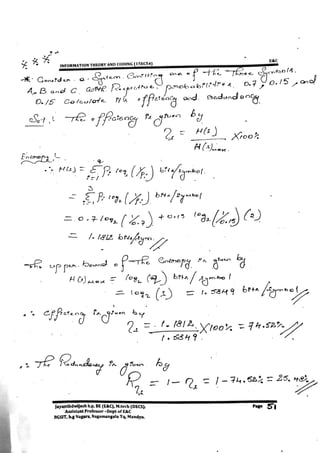 INFORMATION THEORY AND CODING (15EC54) E&C
* Consider a System Emitting one of the three Symbols
A, B and C with Respective probabilities 0.7, 0.15, and
0.15 Calculate its efficiency and redundancy.
Sol : The efficiency is given by
η_s = H(s) / H(s)max × 100%
Entropy :-
∴ H(s) = Σ P_i log₂ (1/P_i) bits/symbol.
= Σ P_i log₂ (1/P_i) bits/symbol
= 0.7 log₂ (1/0.7) + 0.15 log₂ (1/0.15) (2)
= 1.1812 bits/sym.
The upper bound of the Entropy is given by
H(s)max = log₂ (q) bits/symbol
= log₂ (3) = 1.5849 bits/symbol
∴ efficiency is given by
η_s = 1.1812 / 1.5849 × 100% = 74.52%
∴ The Redundancy is given by
R_ηs = 1 - η_s = 1 - 74.52% = 25.48%
Jayanthdwijesh h.p, BE (E&C), M.tech (DECS). Page 51
Assistant Professor –Dept of E&C
BGSIT, b.g Nagara, Nagamangala Tq, Mandya.